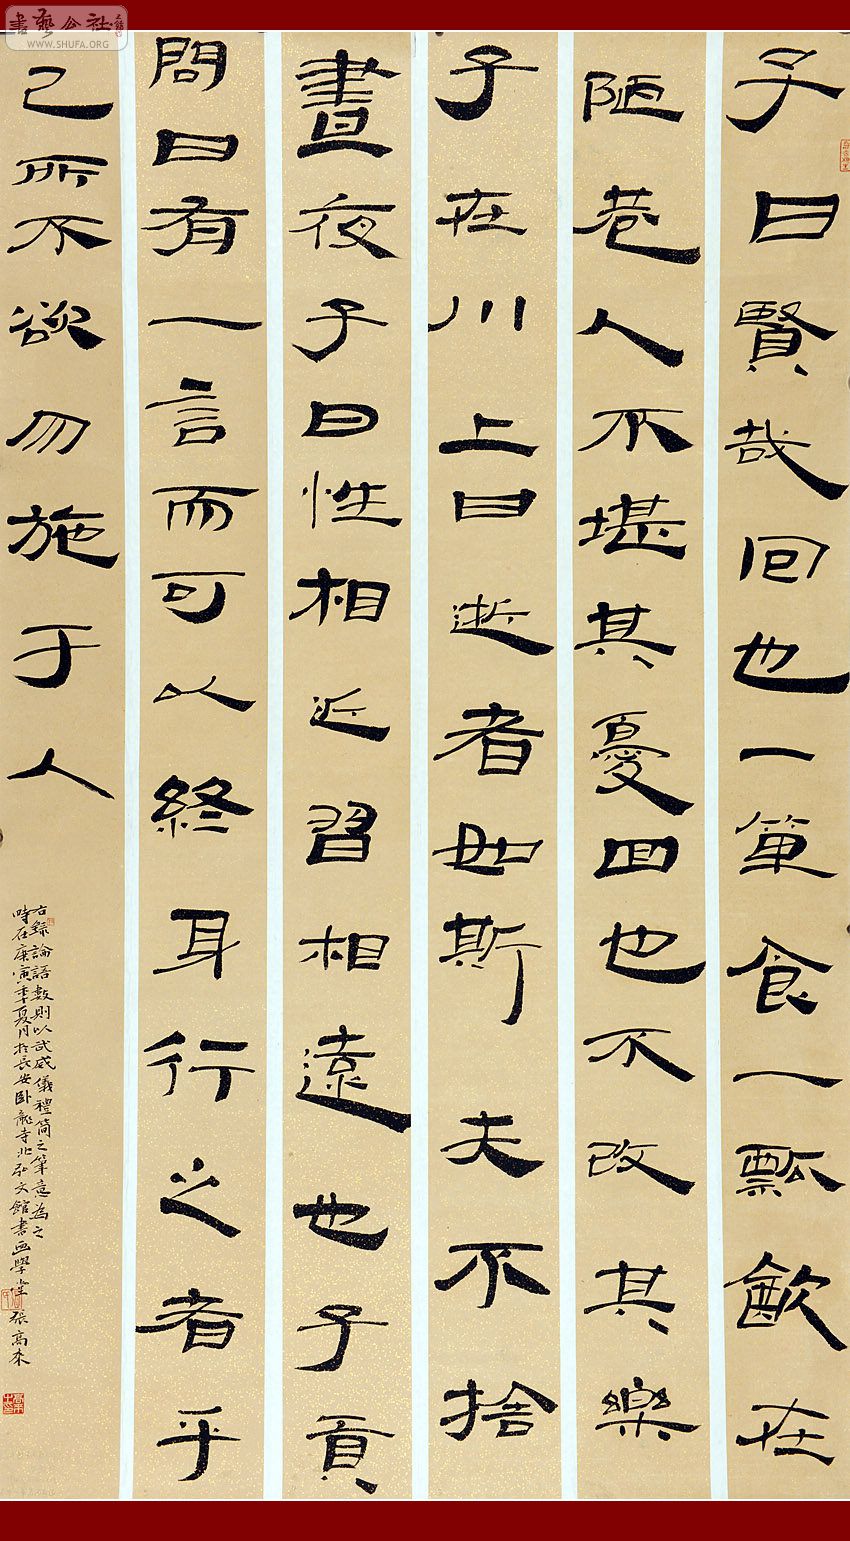 子曰賢哉回也一簞食一瓢飲在
陋巷人不堪其憂回也不改其樂
子在川上曰逝者如斯夫不捨
晝夜子曰性相近習相遠也子貢
問曰有一言而可以終身行之者乎
己所不欲勿施于人
右錄論語數則以武威儀禮簡之筆意為之
時在庚寅季夏月於長安臥龍寺北弘文館書画學堂張高來
書藝公社
WWW.SHUFA.ORG